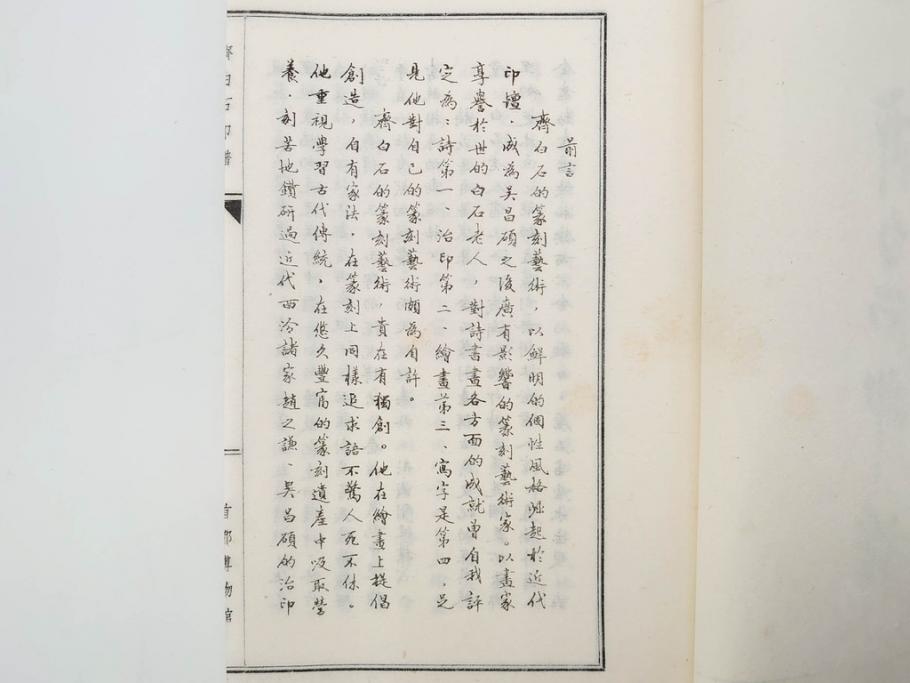 前言
齊白石的篆刻藝術，以鮮明的個性風格崛起於近代
印壇．成為吴昌碩之後廣有影響的篆刻藝術家。以畫家
享譽於世的白石老人，對詩書畫各方面的成就曾自我評
定為：詩第一、治印第二、繪畫第三、寫字是第四，足
見他對自己的篆刻藝術頗為自許。
齊白石的篆刻藝術，貴在有獨創。他在繪畫上提倡
創造，自有家法，在篆刻上同樣追求語不驚人死不休。
他重視學習古代傳統，在悠久豐富的篆刻遺產中吸取營
養．刻苦地鑽研過近代西泠諸家趙之謙、吴昌碩的治印
齊白石印譜
首都博物館